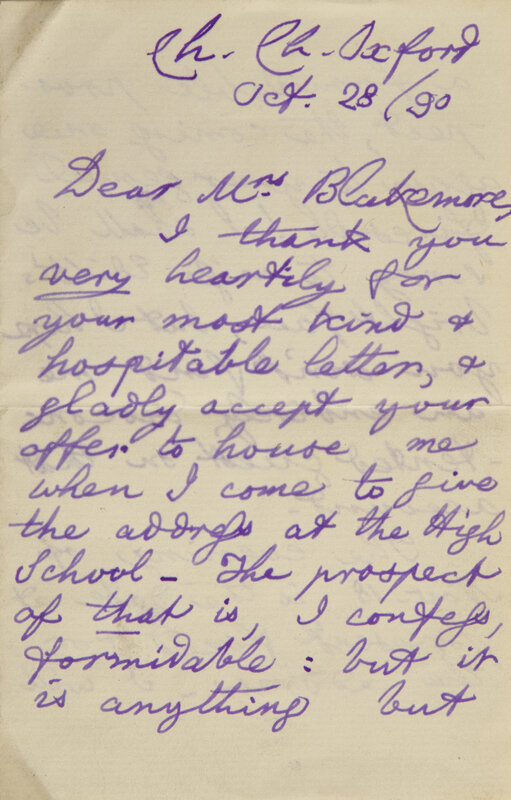 Ch. Ch. Oxford
Oct. 28/90
Dear Mrs Blakemore,
I thank you
very heartily for
your most kind &
hospitable letter, &
gladly accept your
offer to house me
when I come to give
the address at the High
School - The prospect
of that is, I confess,
formidable : but it
is anything but